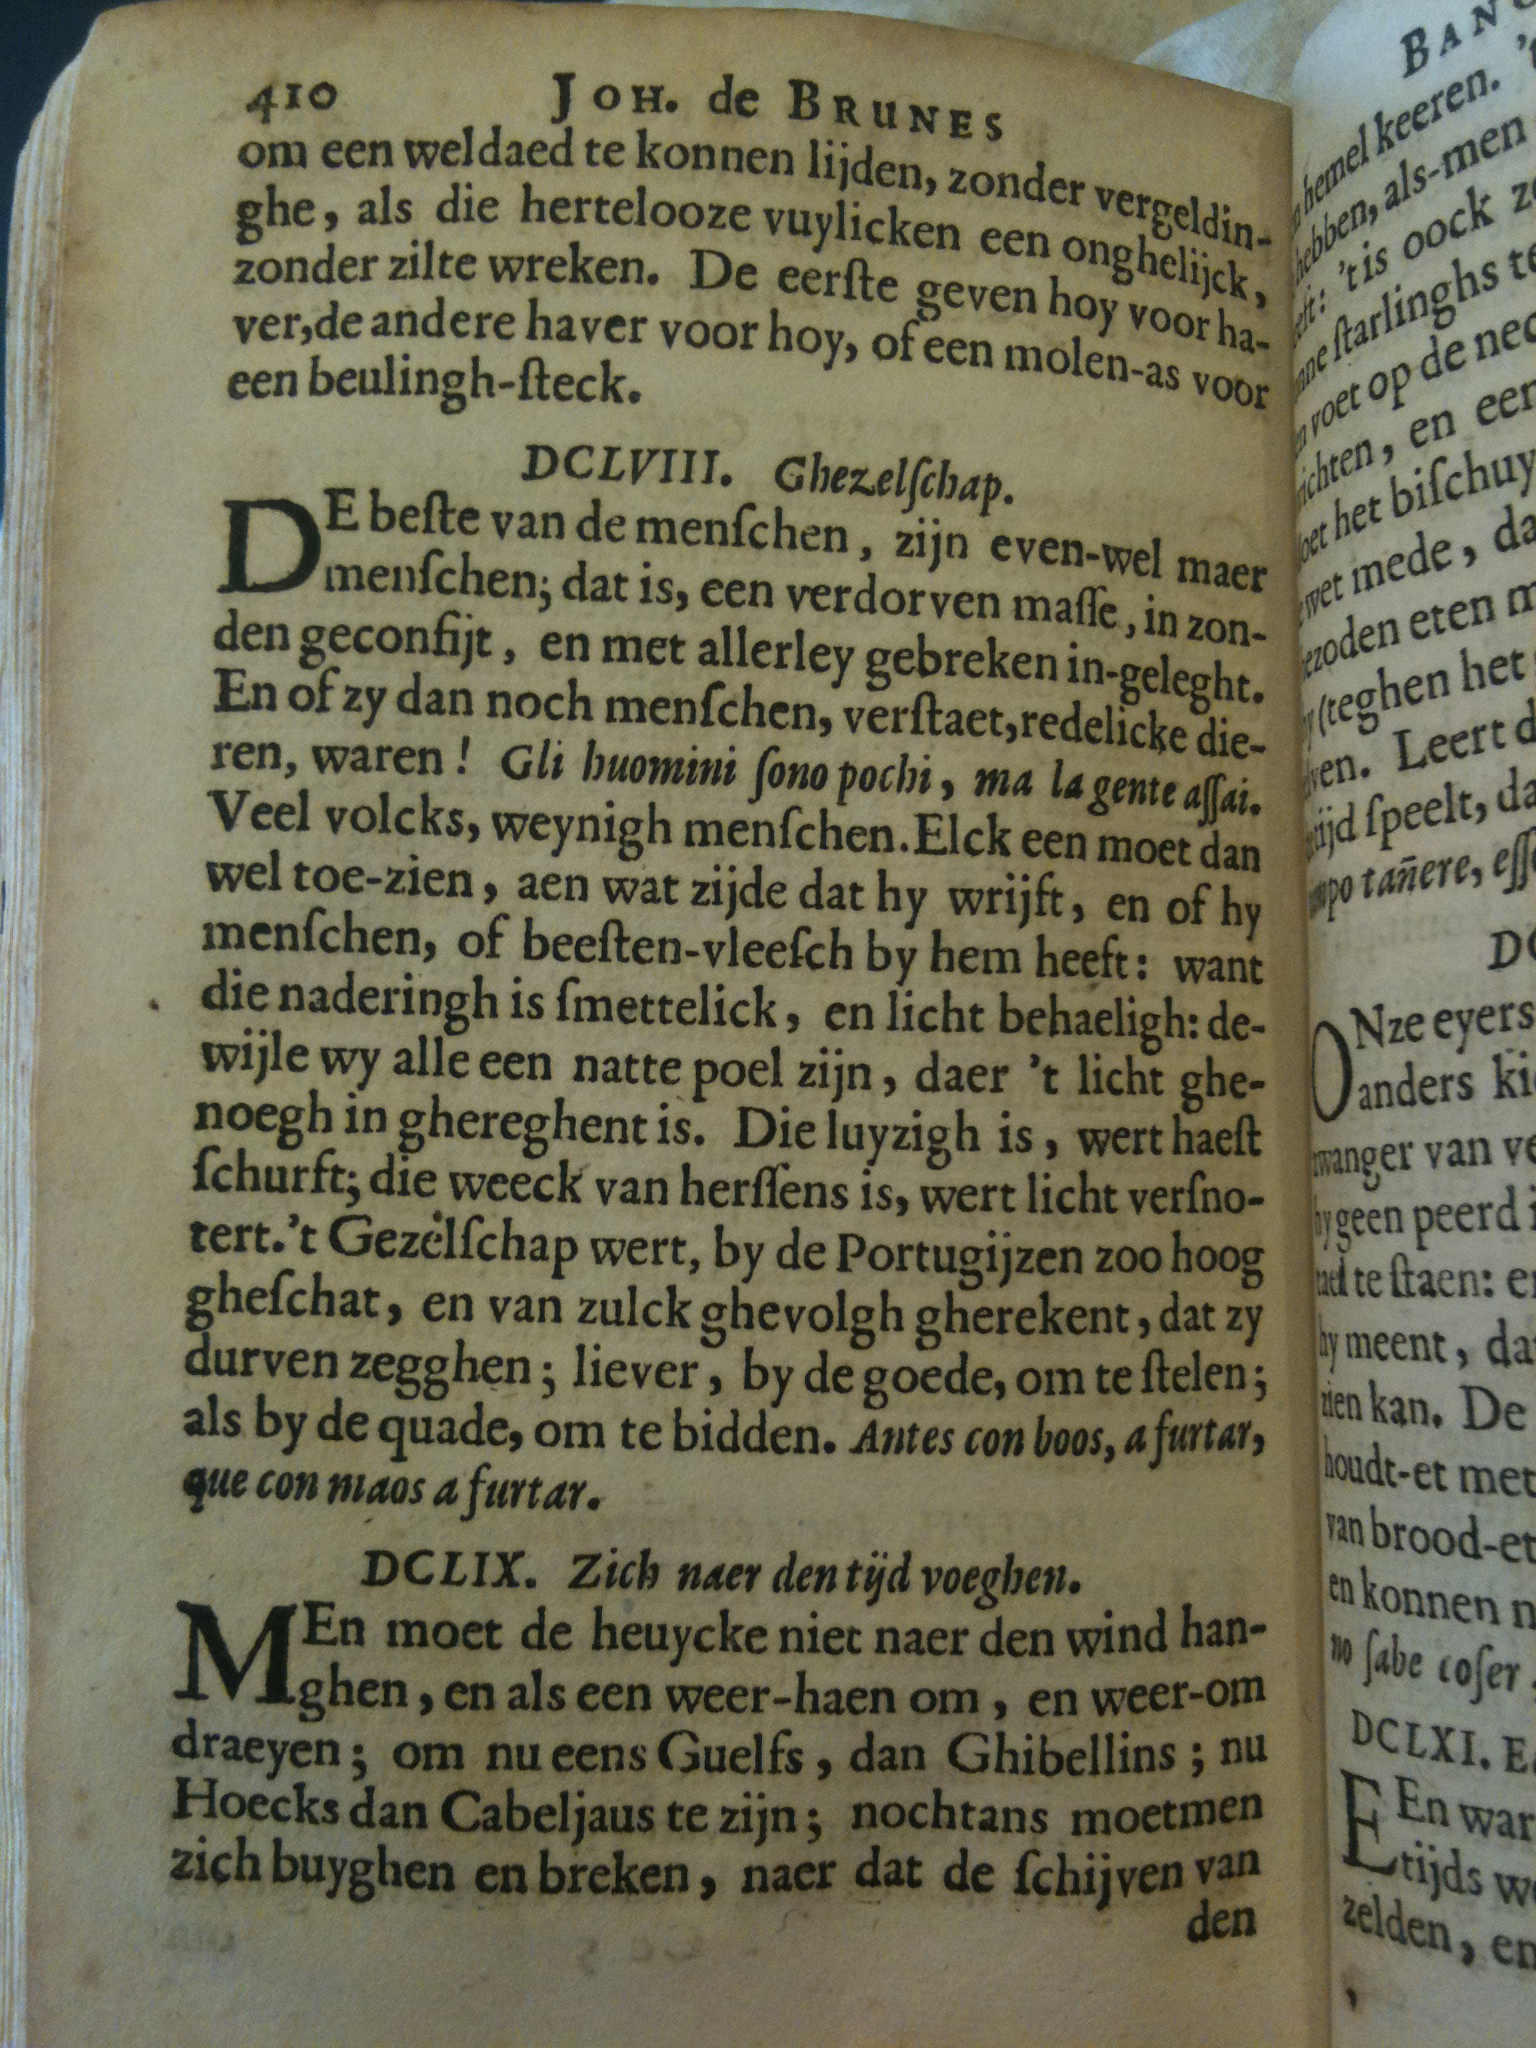 410 JOH. de BRUNES
om een weldaed te konnen lijden, zonder vergeldin-
ghe, als die hertelooze vuylicken een onghelijck,
zonder zilte wreken. De eerſte geven hoy voor ha-
ver, de andere haver voor hoy, of een molen-as voor
een beulingh-ſteck.
DCLVIII. Ghezelſchap.
DE beſte van de menſchen, zijn even-wel maer
menſchen; dat is, een verdorven maſſe, in zon-
den geconfijt, en met allerley gebreken in-geleght.
En of zy dan noch menſchen, verſtaet, redelicke die-
ren, waren! Gli huomini ſono pochi, ma la gente aſſai.
Veel volcks, weynigh menſchen. Elck een moet dan
wel toe-zien, aen wat zijde dat hy wrijft, en of hy
menſchen, of beeſten-vleeſch by hem heeft: want
die naderingh is ſmettelick, en licht behaeligh: de-
wijle wy alle een natte poel zijn, daer 't licht ghe-
noegh in ghereghent is. Die luyzigh is, wert haeſt
ſchurft; die weeck van herſſens is, wert licht verſno-
tert. 't Gezelſchap wert, by de Portugijzen zoo hoog
gheſchat, en van zulck ghevolgh gherekent, dat zy
durven zegghen; liever, by de goede, om te ſtelen;
als by de quade, om te bidden. Antes con boos, a furtar,
que con maos a furtar.
DCLIX. Zich naer den tijd voeghen.
MEn moet de heuycke niet naer den wind han-
ghen, en als een weer-haen om, en weer-om
draeyen; om nu eens Guelfs, dan Ghibellins; nu
Hoecks dan Cabeljaus te zijn; nochtans moetmen
zich buyghen en breken, naer dat de ſchijven van
den
BANC
hemel keeren.
hebben, als-men
't is oock
ſtarlinghs
voet op de
en een
het biſchuy
mede,
eten
(teghen het
Leert
ſpeelt,
tañere,
ONze eyers
anders
van
geen peerd
te ſtaen:
hy meent,
kan. De
houdt-et met
van brood-et
en konnen
no ſabe coſer
DCLXI.
EEn war
tijds
zelden, en